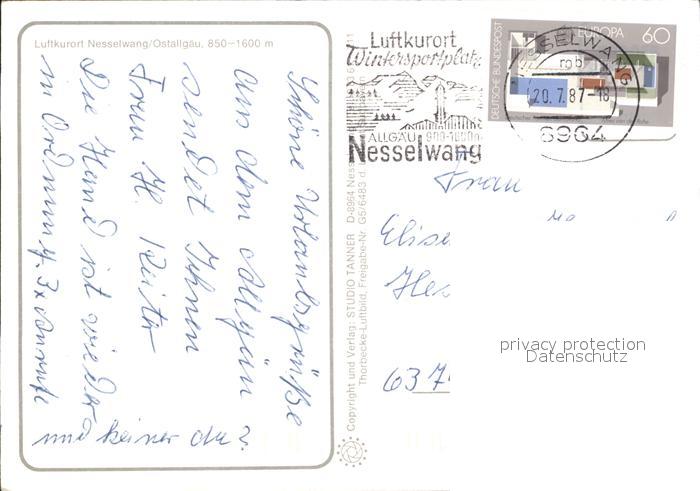 Luftkurort Nesselwang/Ostallgäu, 850–1600 m
Schöne Urlaubsgrüße
aus dem Allgäu
sendet Ihnen
Frau H. Reiter
Die Hand ist wieder
in Ordnung. 3x anrufe
und keiner da?
Copyright und Verlag: STUDIO TANNER D-8964 Ness
Thorbecke-Luftbild, Freigabe-Nr G5/6483 d.
Luftkurort
Wintersportplatz
ALLGÄU 900-1600m
Nesselwang
DEUTSCHE BUNDESPOST
EUROPA 60
NESSELWANG
20.7.87-18
8964
Frau
Elise
He
637
privacy protection
Datenschutz